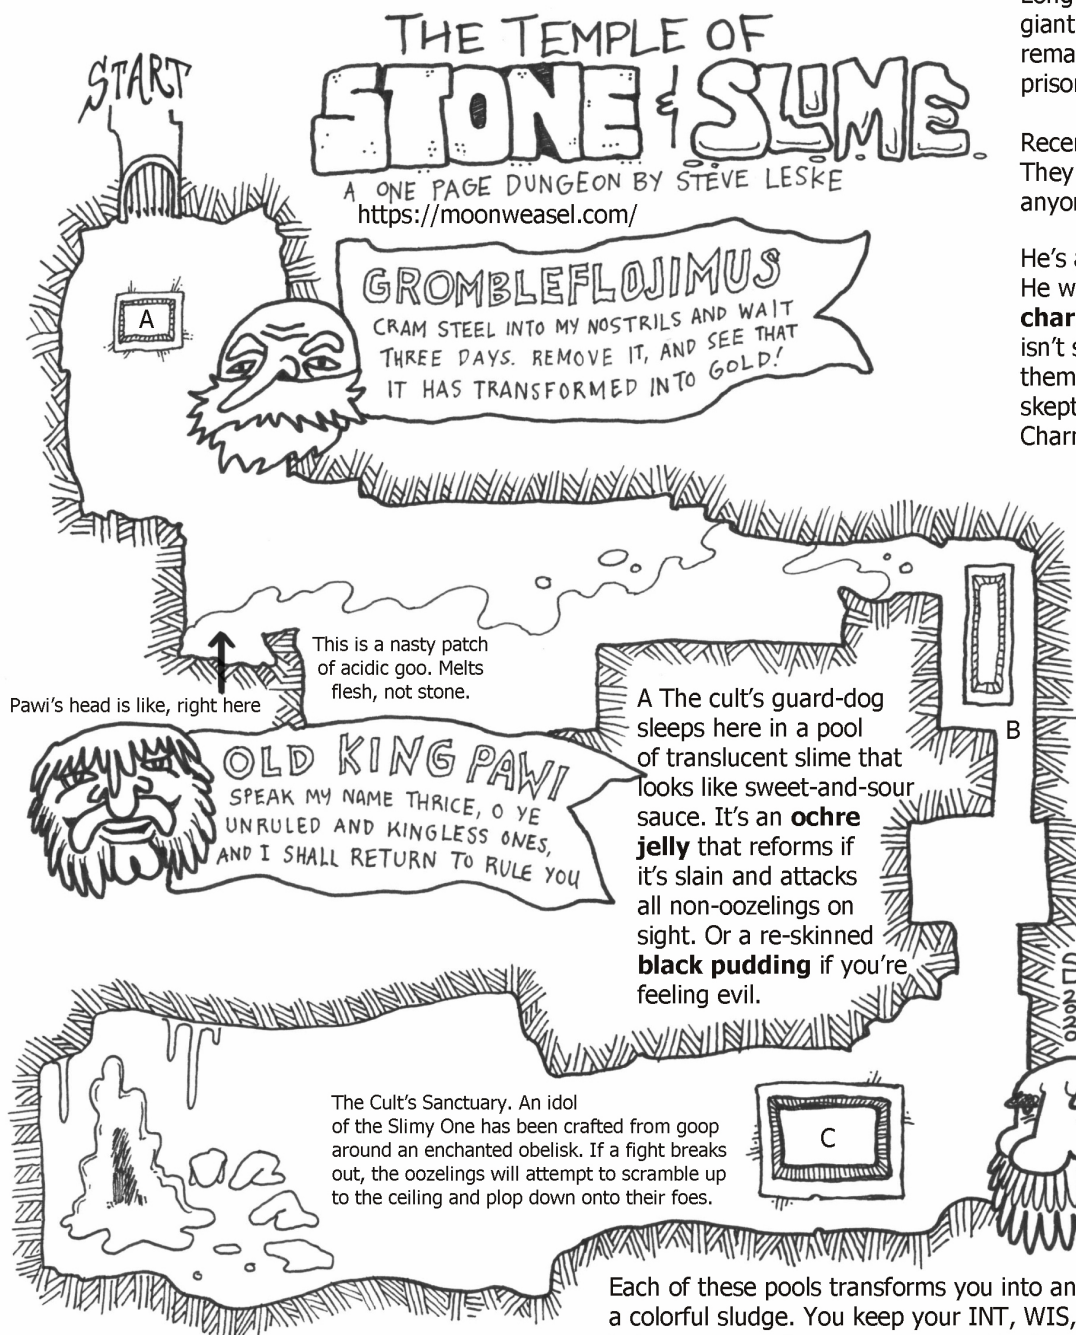 THE TEMPLE OF
STONE & SLIME
A ONE PAGE DUNGEON BY STEVE LESKE
https://moonweasel.com/
START
A
GROMBLEFLOJIMUS
CRAM STEEL INTO MY NOSTRILS AND WAIT
THREE DAYS. REMOVE IT, AND SEE THAT
IT HAS TRANSFORMED INTO GOLD!
giant
rema
prison
Recen
They
anyon
He's a
He w
char
isn't s
them
skept
Charm
This is a nasty patch
of acidic goo. Melts
flesh, not stone.
Pawi's head is like, right here
OLD KING PAWI
SPEAK MY NAME THRICE, O YE
UNRULED AND KINGLESS ONES,
AND I SHALL RETURN TO RULE YOU
B
A The cult's guard-dog
sleeps here in a pool
of translucent slime that
looks like sweet-and-sour
sauce. It's an ochre
jelly that reforms if
it's slain and attacks
all non-oozelings on
sight. Or a re-skinned
black pudding if you're
feeling evil.
The Cult's Sanctuary. An idol
of the Slimy One has been crafted from goop
around an enchanted obelisk. If a fight breaks
out, the oozelings will attempt to scramble up
to the ceiling and plop down onto their foes.
C
Each of these pools transforms you into an
a colorful sludge. You keep your INT, WIS,